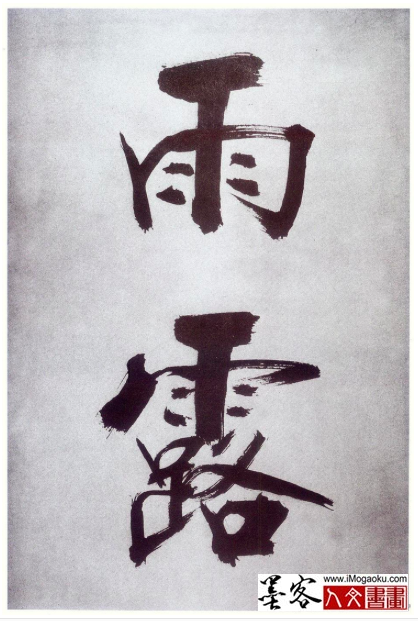 雨
露
墨客
www.iMogaoku.com
人文書畫